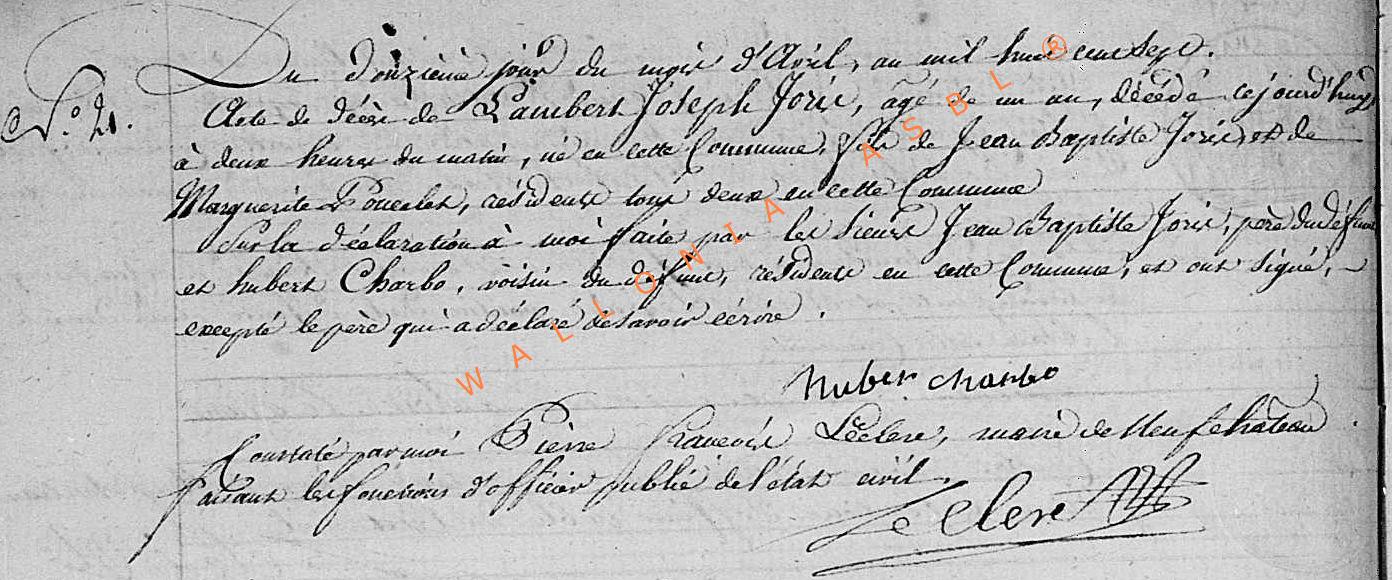 N.° 21.
Du onzième jour du mois d'Avril, an mil huit cent sept.
Acte de décès de Lambert Joseph Joris, agé de un an, décédé cejourd'huy
à deux heures du matin, né en cette Commune, fils de Jean Baptiste Joris, et de
Marguerite Poncelet, résidents tous deux en cette Commune
Sur la déclaration à moi faite par les sieurs Jean Baptiste Joris, père du défunt
et hubert Charbo, voisin du défunt, résidents en cette Commune, et ont signé,
excepté le père qui a déclaré ne savoir écrire.
huber charbo
Constaté par moi Pierre françois Leclerc, maire de Neufchâteau
faisant les fonctions d'officier public de l'état civil.
Le Clerc
WALLONIA ASBL ®